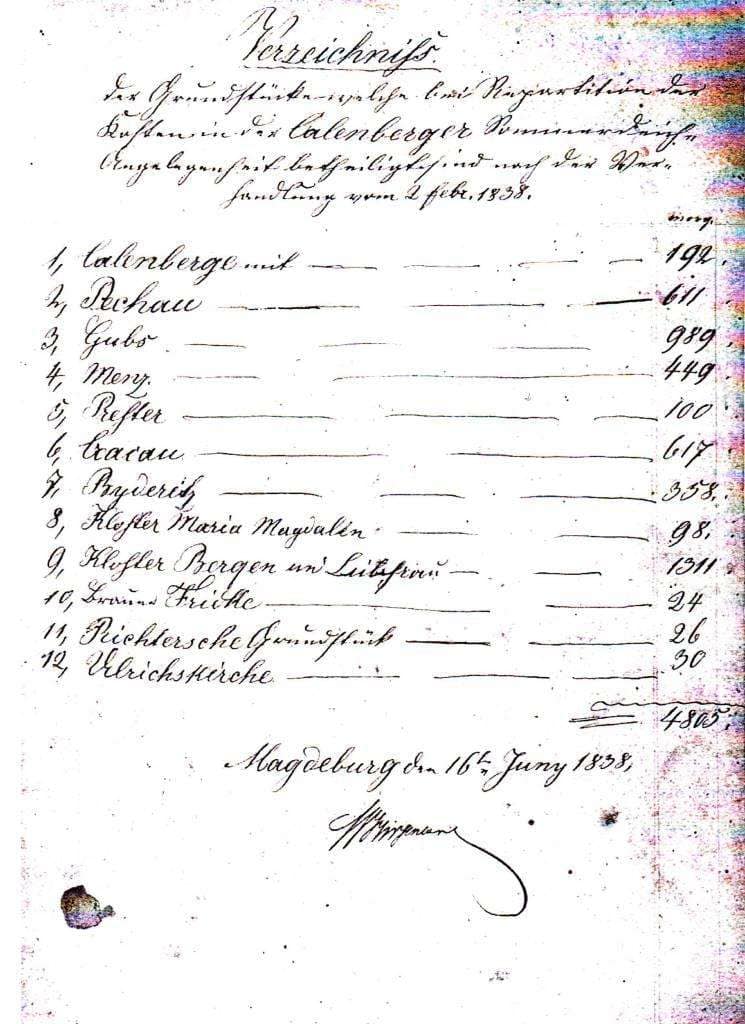 Verzeichniss
der Grundstücke welche bei Repartition der
Kosten in der Calenberger Sommerdeich-
Angelegenheit betheiligt sind nach der Ver-
handlung vom 2 Febr. 1838.
morg.
1, Calenberge mit 192.
2, Pechau 611
3, Gubs 989.
4, Menz. 449
5, Prester 100
6, Cracau 617
7, Byderitz 358.
8, Kloster Maria Magdalen 98.
9, Kloster Bergen 1311
10, Brauer Fricke 24
11, Richtersche Grundstück 26
12, Ulrichskirche 30
4805.
Magdeburg den 16tn Juny 1838,